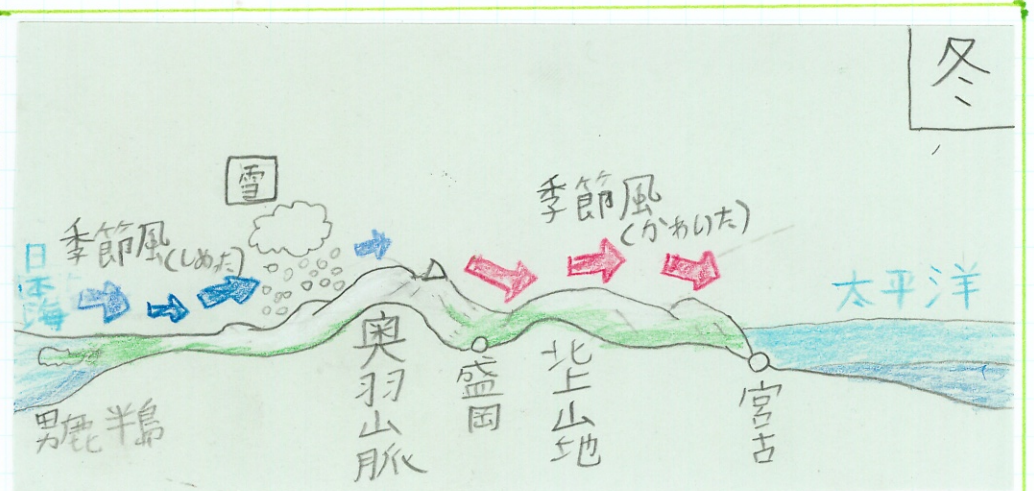 冬
雪
季節風
(しめった)
季節風
(かわいた)
日本海
太平洋
男鹿半島
奥羽山脈
盛岡
北上山地
宮古